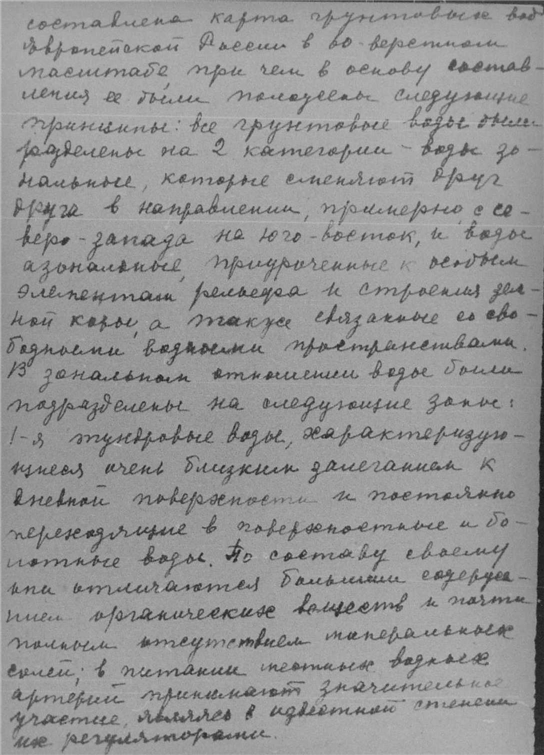 составлена карта грунтовых вод
Европейской России в 60 верстном
масштабе при чем в основу состав-
ления ее были положены следующие
принципы: все грунтовые воды были
разделены на 2 категории - воды зо-
нальные, которые сменяют друг
друга в направлении, примерно с се-
веро-запада на юго-восток, и воды
азональные, приуроченные к особым
элементам рельефа и строения зем-
ной коры, а также связанные со сво-
бодными водными пространствами.
В зональном отношении воды были
подразделены на следующие зоны:
1-я тундровые воды, характеризую-
щиеся очень близким залеганием к
дневной поверхности и постоянно
переходящие в поверхностные и бо-
лотные воды. По составу своему
они отличаются большим содержа-
нием органических веществ и почти
полным отсутствием минеральных
солей; в питании местных водных
артерий принимают значительное
участие, являясь в известной степени
их регуляторами.